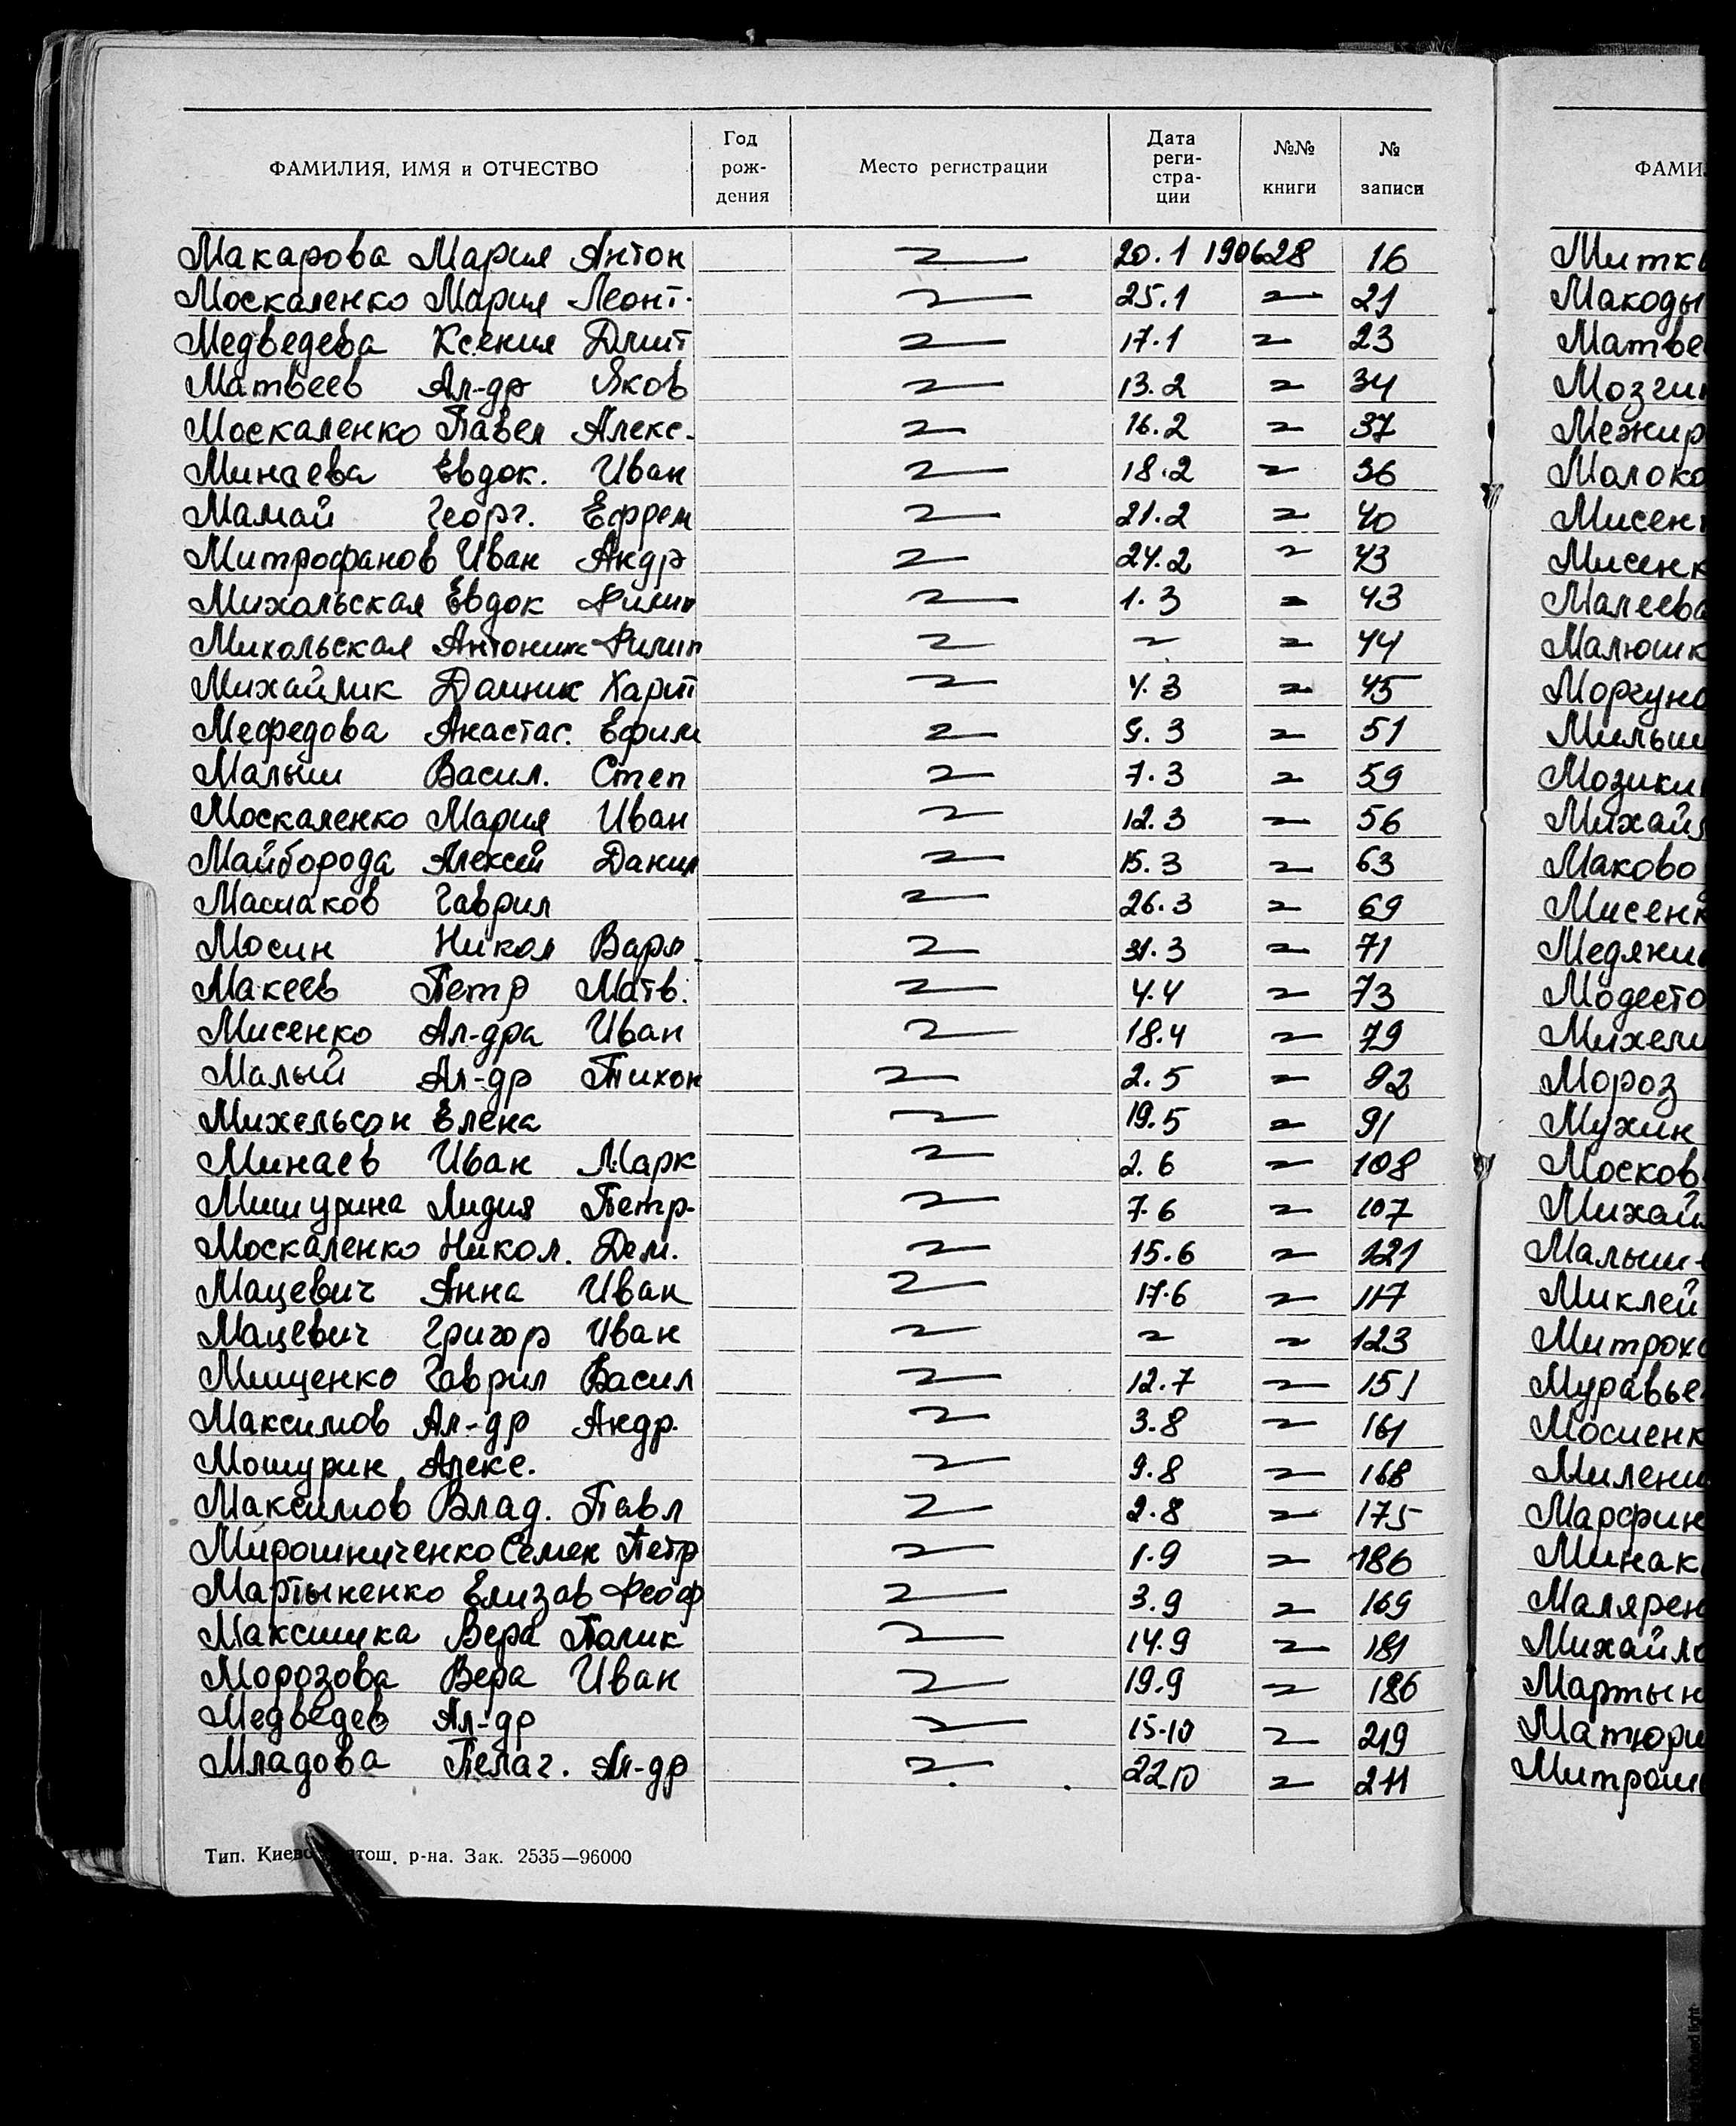 ФАМИЛИЯ, ИМЯ и ОТЧЕСТВО Год рож- дения Место регистрации Дата реги- стра- ции №№ книги № записи
Макарова Мария Антон 20.1 1906 28 16
Москаленко Мария Леонт. 25.1 21
Медведева Ксения Дмит 17.1 23
Матвеев Ал-др Яков 13.2 34
Москаленко Павел Алекс. 16.2 37
Минаева Евдок. Иван 18.2 36
Мамай Георг. Ефрем 21.2 40
Митрофанов Иван Андр 24.2 43
Михольская Евдок Филип 1.3 43
Михольская Антонин Филип 44
Михайлик Харит 4.3 45
Мефедова Анастас. Ефим 9.3 51
Малыш Васил. Степ 7.3 59
Москаленко Мария Иван 12.3 56
Майборода Алексей Данил 15.3 63
Гаврил 26.3 69
Мосин Никол Варл. 31.3 71
Макеев Петр Матв. 4.4 73
Мисенко Ал-дра Иван 18.4 79
Малый Ал-др Тихон 2.5 92
Михельсон Елена 19.5 91
Минаев Иван Марк 2.6 108
Мишурина Лидия Петр. 7.6 107
Москаленко Никол. Дем. 15.6 121
Мацевич Анна Иван 17.6 117
Мацевич Григор Иван 123
Мищенко Гаврил Васил 12.7 151
Максимов Ал-др Андр. 3.8 161
Мошурин Алекс. 9.8 168
Максимов Влад. Павл 2.8 175
Мирошниченко Семен Петр 1.9 186
Мартыненко Елизав Феоф 3.9 169
Вера 14.9 181
Морозова Вера Иван 19.9 186
Медведев Ал-др 15.10 219
Младова Пелаг. Ал-др 22 10 211
Тип. Киево р-на. Зак. 2535—96000
ФАМИ
Митк
Макоды
Матве
Мозги
Межир
Молоко
Мисен
Мисенк
Малеева
Малюшк
Моргуно
Мозики
Михай
Маково
Мисенк
Медяни
Модесто
Михели
Мороз
Мухин
Москов
Михай
Малыш
Миклей
Митрох
Муравье
Милени
Марфин
Минак
Малярен
Михайло
Мартын
Матюри
Митрош